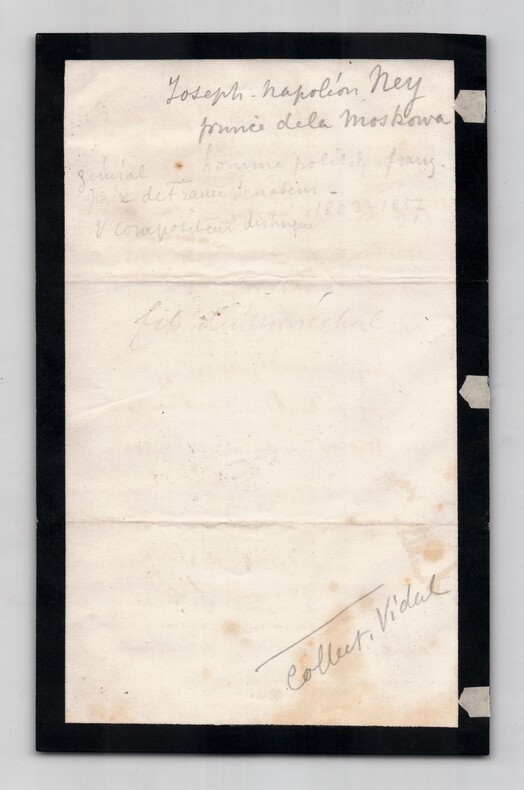 Joseph-Napoléon Ney
prince de la Moskowa
général homme politiq. franç.
pair de France
1803-1857
& compositeur distingué
fils du maréchal
Collect. Vidal